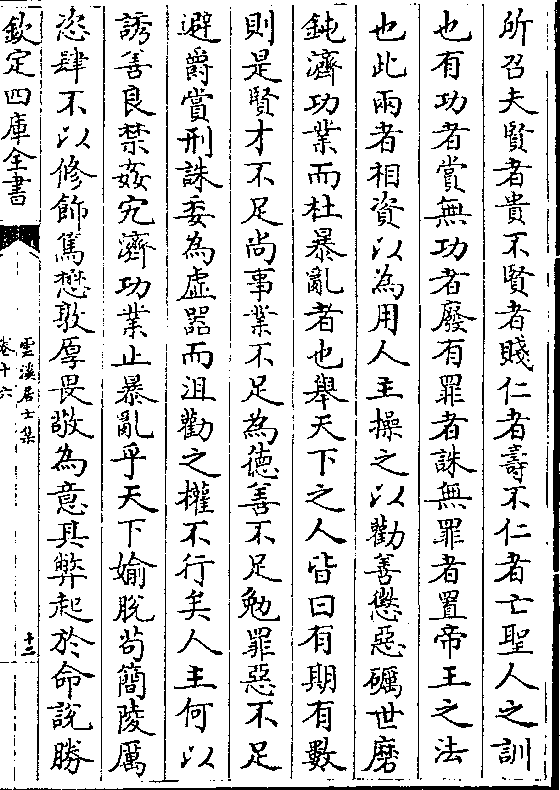 所召夫賢者貴不賢者賤仁者壽不仁者亡聖人之訓
也有功者賞無功者廢有罪者誅無罪者置帝王之法
也此兩者相資以為用人主操之以勸善懲惡礪世磨
鈍濟功業而杜暴亂者也舉天下之人皆曰有期有數
則是賢才不足尚事業不足為徳善不足勉罪惡不足
避爵賞刑誅委為虛器而沮勸之權不行矣人主何以
誘善良禁姦宄濟功業止暴亂乎天下媮脫茍簡陵厲
恣肆不以修飾篤懋敦厚畏敬為意其弊起於命說勝
欽定四庫全書
雲溪居士集
卷十六
十三